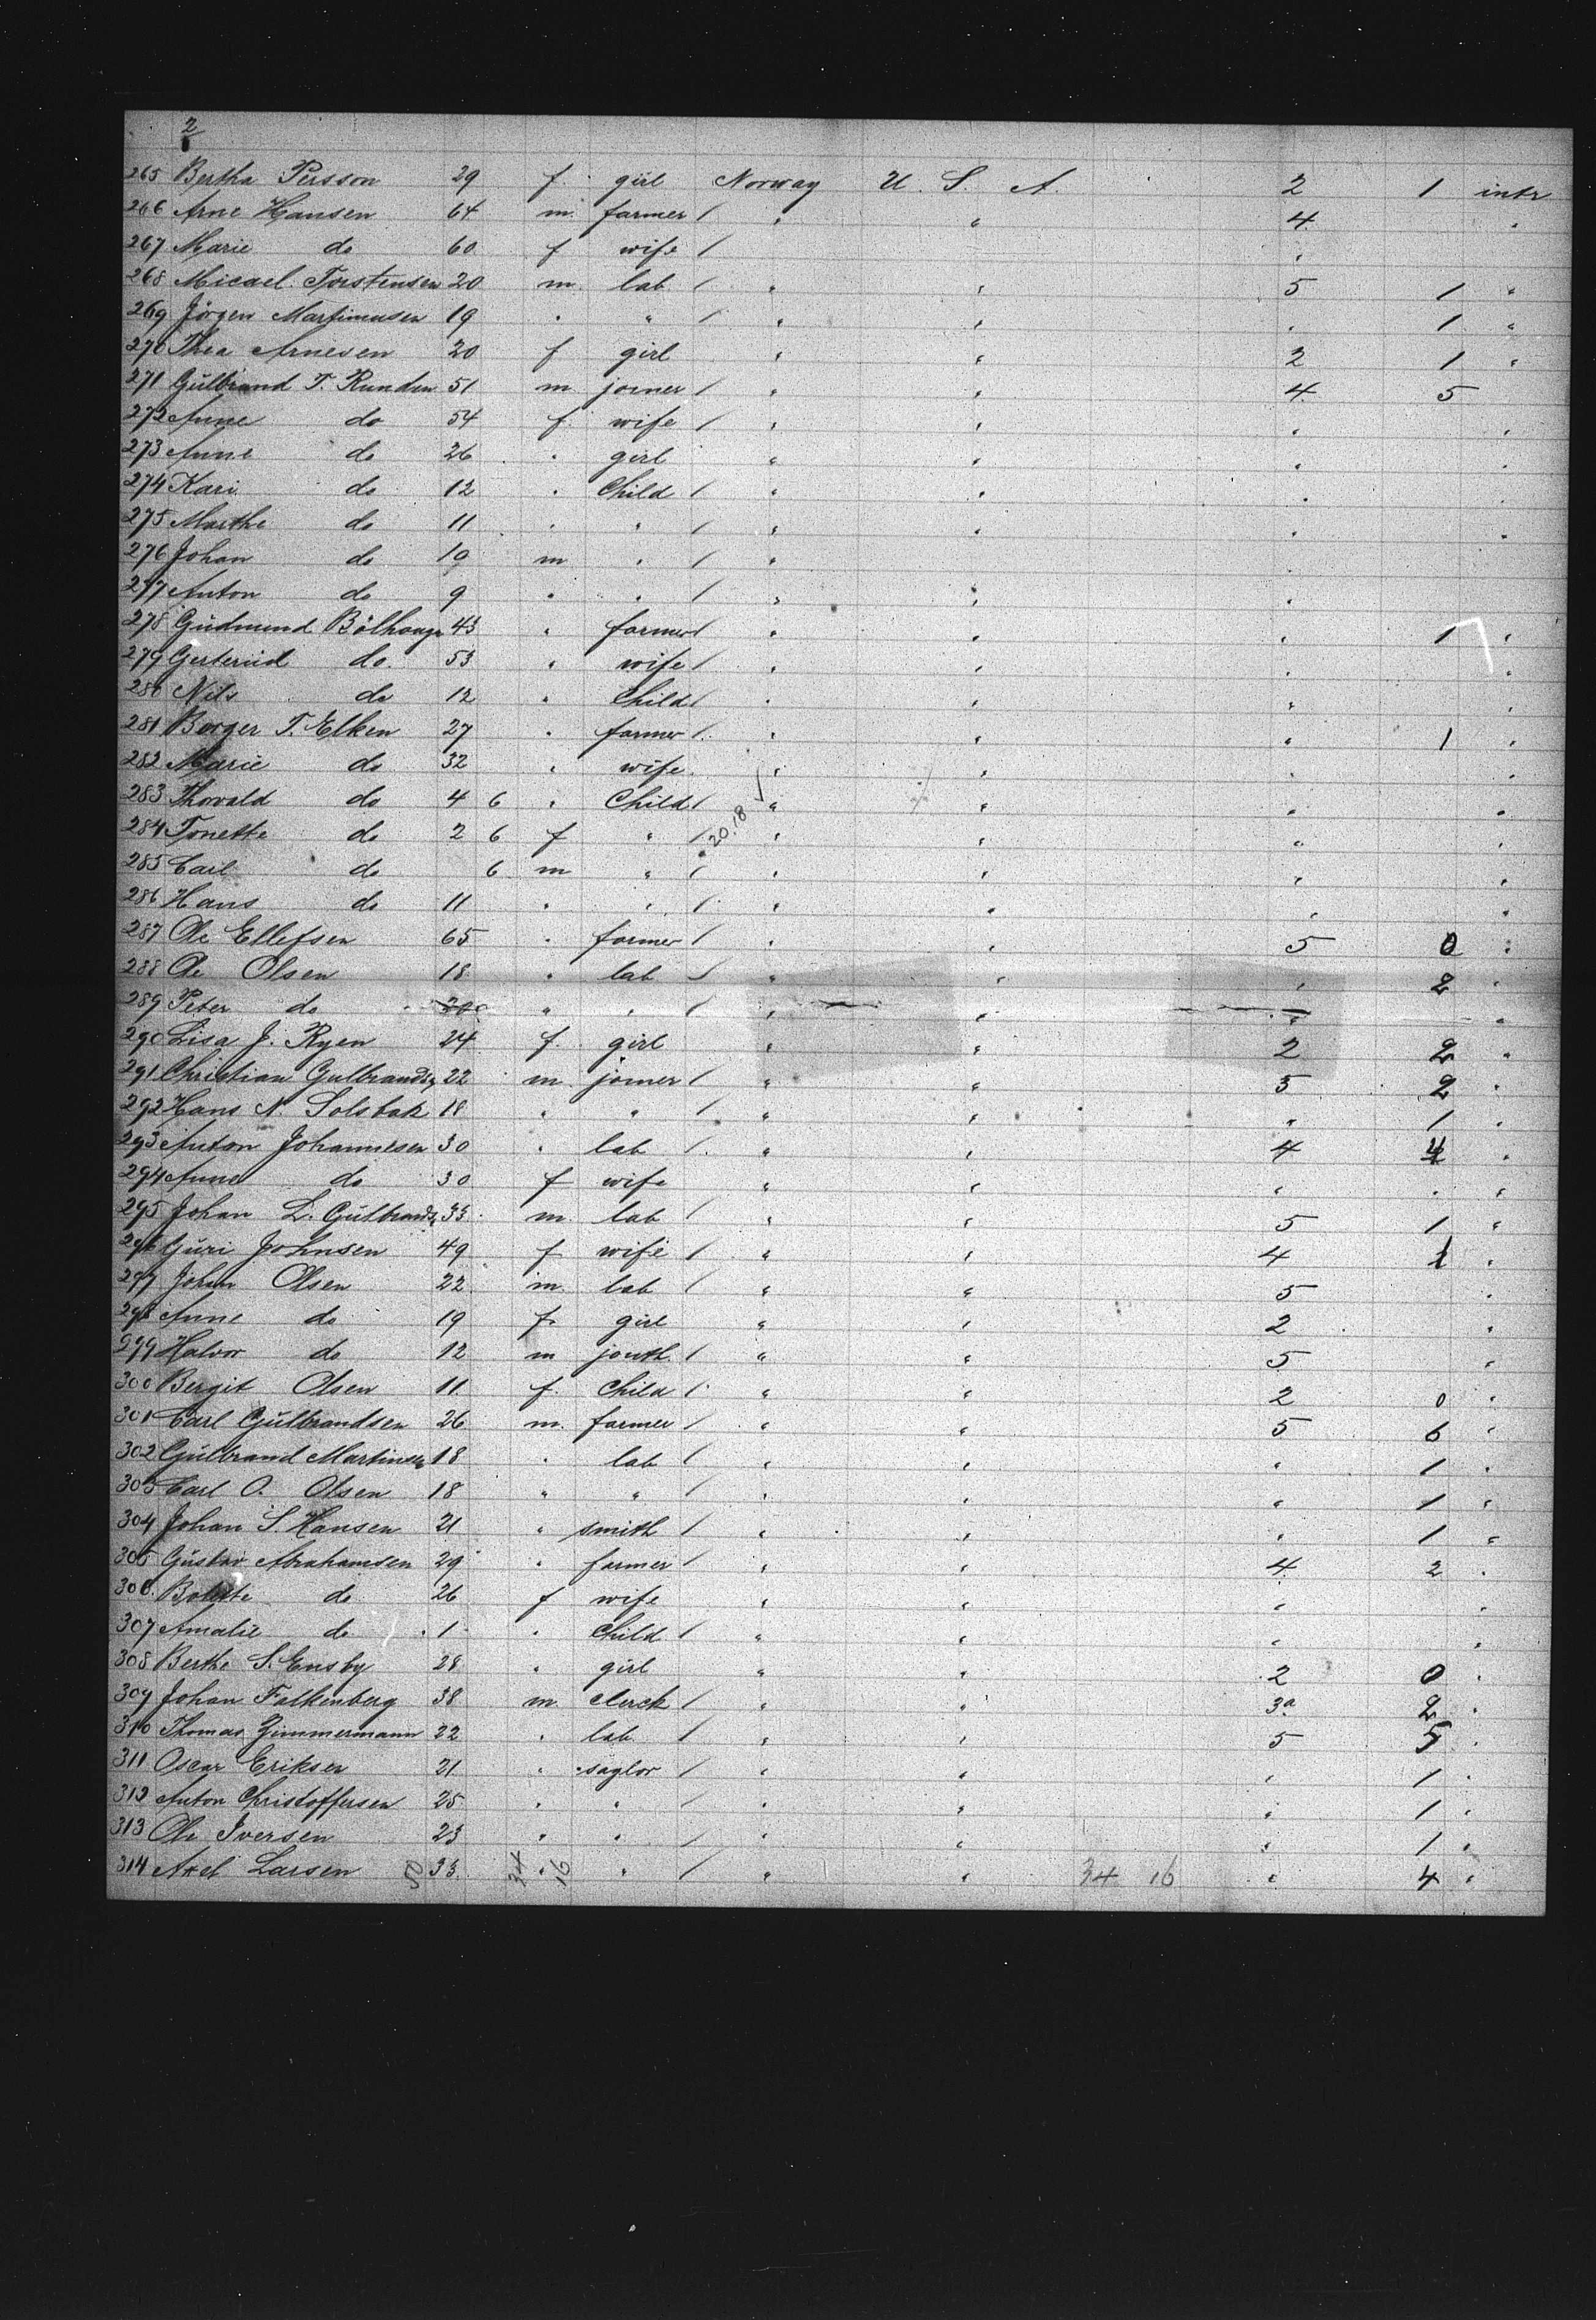 2
265 Bertha Persson 29 f. girl Norway U. S. A. 2 1 intr
266 Arne Hansen 64 m. farmer / " " 4 "
267 Marie do 60 f wife / "
268 Micael Torstensen 20 m lab / " " 5 1 "
269 Jörgen Martinusen 19 " " / " " " 1 "
270 Thea Arnesen 20 f girl " " 2 1 "
271 Gülbrand T. Runden 51 m joiner / " " 4 5
272 Anne do 54 f wife / " " " "
273 Anne do 26 " girl " " " "
274 Kari do 12 " Child / " " " "
275 Marthe do 11 " " / " " " "
276 Johan do 19 m " / " "
277 Anton do 9 " " / " " "
278 Güdmund 43 " farmer / " " " 1 "
279 Gerterüd do 53 " wife / " " " "
280 Nils do 12 " Child / " " " "
281 Borger T. Elken 27 " farmer / " " " 1 "
282 Marie do 32 " wife " " " "
283 Thorvald do 4 6 " Child / " " " "
284 Tonette do 2 6 f " / 20.18 " " " "
285 Carl do 6 m " / " " " "
286 Hans do 11 " " / " " " "
287 Ole Ellefsen 65 " farmer / " " 5 0 "
288 Ole Olsen 18 " lab / " " " 2 "
289 Peter do 20 " " / " " " "
290 Lisa J. Ryen 24 f. girl " " 2 2 "
291 Christian Gulbrandsen 22 m joiner / " " 5 2 "
292 Hans N. Solsbak 18 " " / " " " 1 "
293 Anton Johannesen 30 " lab / " " 4 4 "
294 Anne do 30 f wife " " " " "
295 Johan L. Gülbrands 33 m. lab / " " 5 1 "
296 Güri Johnsen 49 f wife / " " 4 1 "
297 Johan Olsen 22 m. lab / " " 5 "
298 Anne do 19 f. girl " " 2 "
299 Halvor do 12 m jouth / " " 5 "
300 Bergit Olsen 11 f. Child / " " 2 0 "
301 Carl Gülbrandsen 26 m. farmer / " " 5 6 "
302 Gülbrand Martinsen 18 " lab / " " " 1 "
303 Carl O. Olsen 18 " " / " " " 1 "
304 Johan S. Hansen 21 " smith / " " " 1 "
305 Güstav Abrahamsen 29 " farmer / " " 4 2 "
306 Bolette do 26 f wife " " " "
307 Amalie do 1 " Child / " " " "
308 Berthe S. Ensby 28 " girl " " 2 0 "
309 Johan Falkenberg 38 m. clerck / " " 3a 2 "
310 Thomas Zimmermann 22 " lab / " " 5 5 "
311 Oscar Eriksen 21 " saylor / " " " 1 "
312 Anton Christoffersen 25 " " / " " " 1 "
313 Ole Iversen 23 " " / " " " 1 "
314 Axel Larsen 50 33 34 " 16 " / " " 34 16 " 4 "